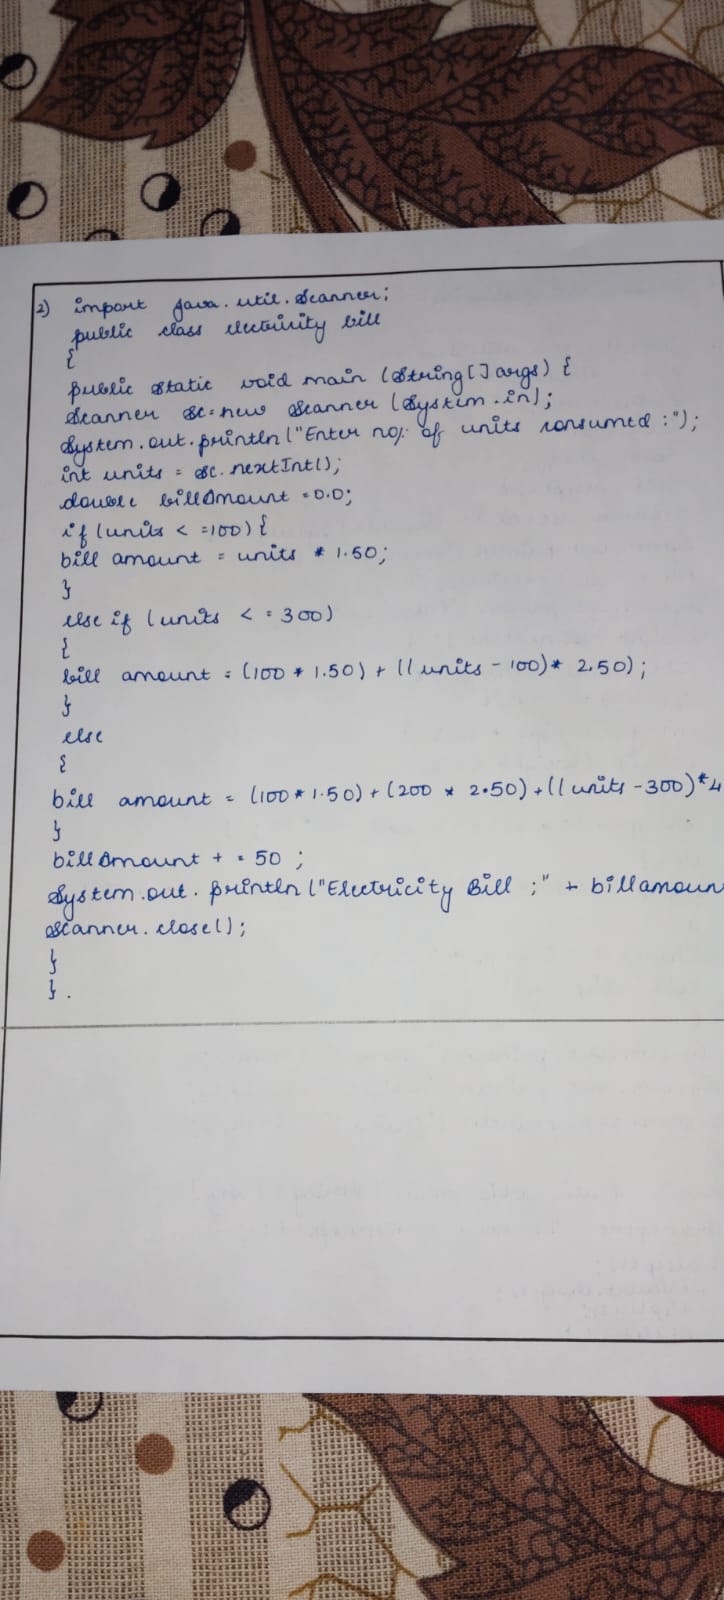 2) import java.util.Scanner;
public class electricity bill
{
public static void main (String[] args) {
Scanner sc=new Scanner (System.in);
System.out.println("Enter no. of units consumed :");
int units = sc.nextInt();
double billAmount = 0.0;
if (units < =100) {
bill amount = units * 1.50;
}
else if (units < = 300)
{
bill amount = (100 * 1.50) + ((units - 100)* 2.50);
}
else
{
bill amount = (100 * 1.50) + (200 * 2.50) + ((units -300)*4
}
billAmount + = 50 ;
System.out. println ("Electricity Bill :" + billamoun
Scanner.close();
}
} .